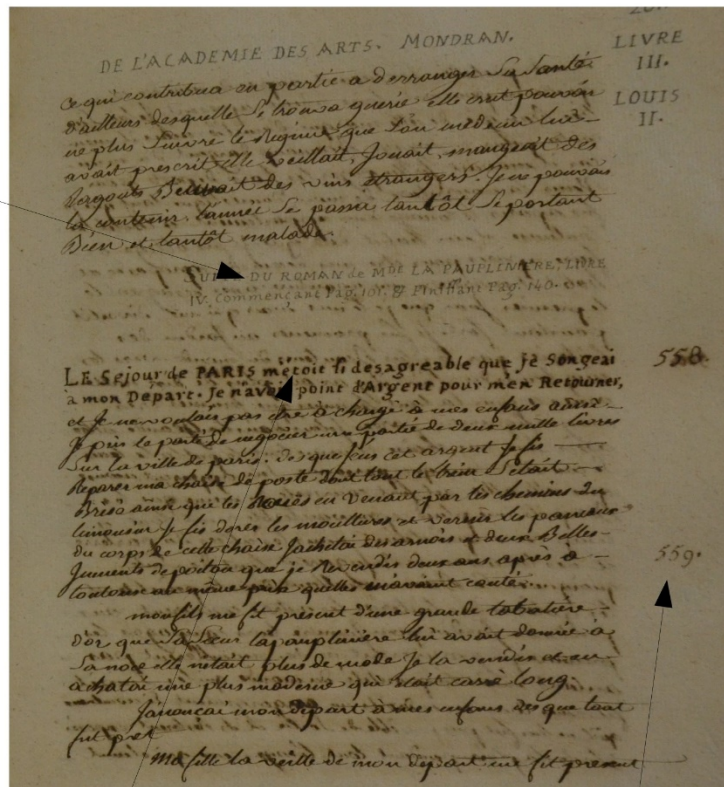 DE L'ACADEMIE DES ARTS. MONDRAN.
LIVRE
III.
LOUIS
II.
Ce qui contribua en partie a derranger Sa Santé
d'ailleurs desquelle Se trouva guerie elle crut pouvoir
ne plus Suivre le Regime que Son medecin lui
avait prescrit elle veillait, Jouait, mangeait des
Ragouts Beuvait des vins étrangers Je ne pouvais
la contenir l'année Se passa tantôt Se portant
Bien et tantôt malade.
SUITE DU ROMAN de Mde LA PAUPLINIERE. LIVRE
IV. Commençant Pag. 101. & Finissant Pag. 140.
LE Sejour de PARIS metoit si desagreable que je Songeai
558.
à mon Depart. Je n'avois point d'Argent pour m'en Retourner,
et Je ne voulais pas être à charge à mes enfans ainsi
Je pris le parti de negocier une partie de deux mille livres
Sur la ville de paris. des que J'eus cet argent Je fis
Reparer ma chaise de poste dont tout le train S'était
Brisé ainsi que les Roues en Venant par les chemins du
limousin Je fis dorer les moullures et vernir les panneaux
du corps de cette chaise J'achetai des arnois et deux Belles
559.
Juments de poitou que je Revendis deux ans après a
toulouse au même prix qu'elles m'avaient couté.
mon fils me fit present d'une grande tabatiere
d'or que Sa Sœur lapaupliniere lui avait donnée à
Sa noce elle n'etait plus de mode Je la vendis et en
achatai une plus moderne qui était carré long.
J'anonçai mon départ a mes enfans des que tout
fut pret
Ma fille la veille de mon depart me fit present